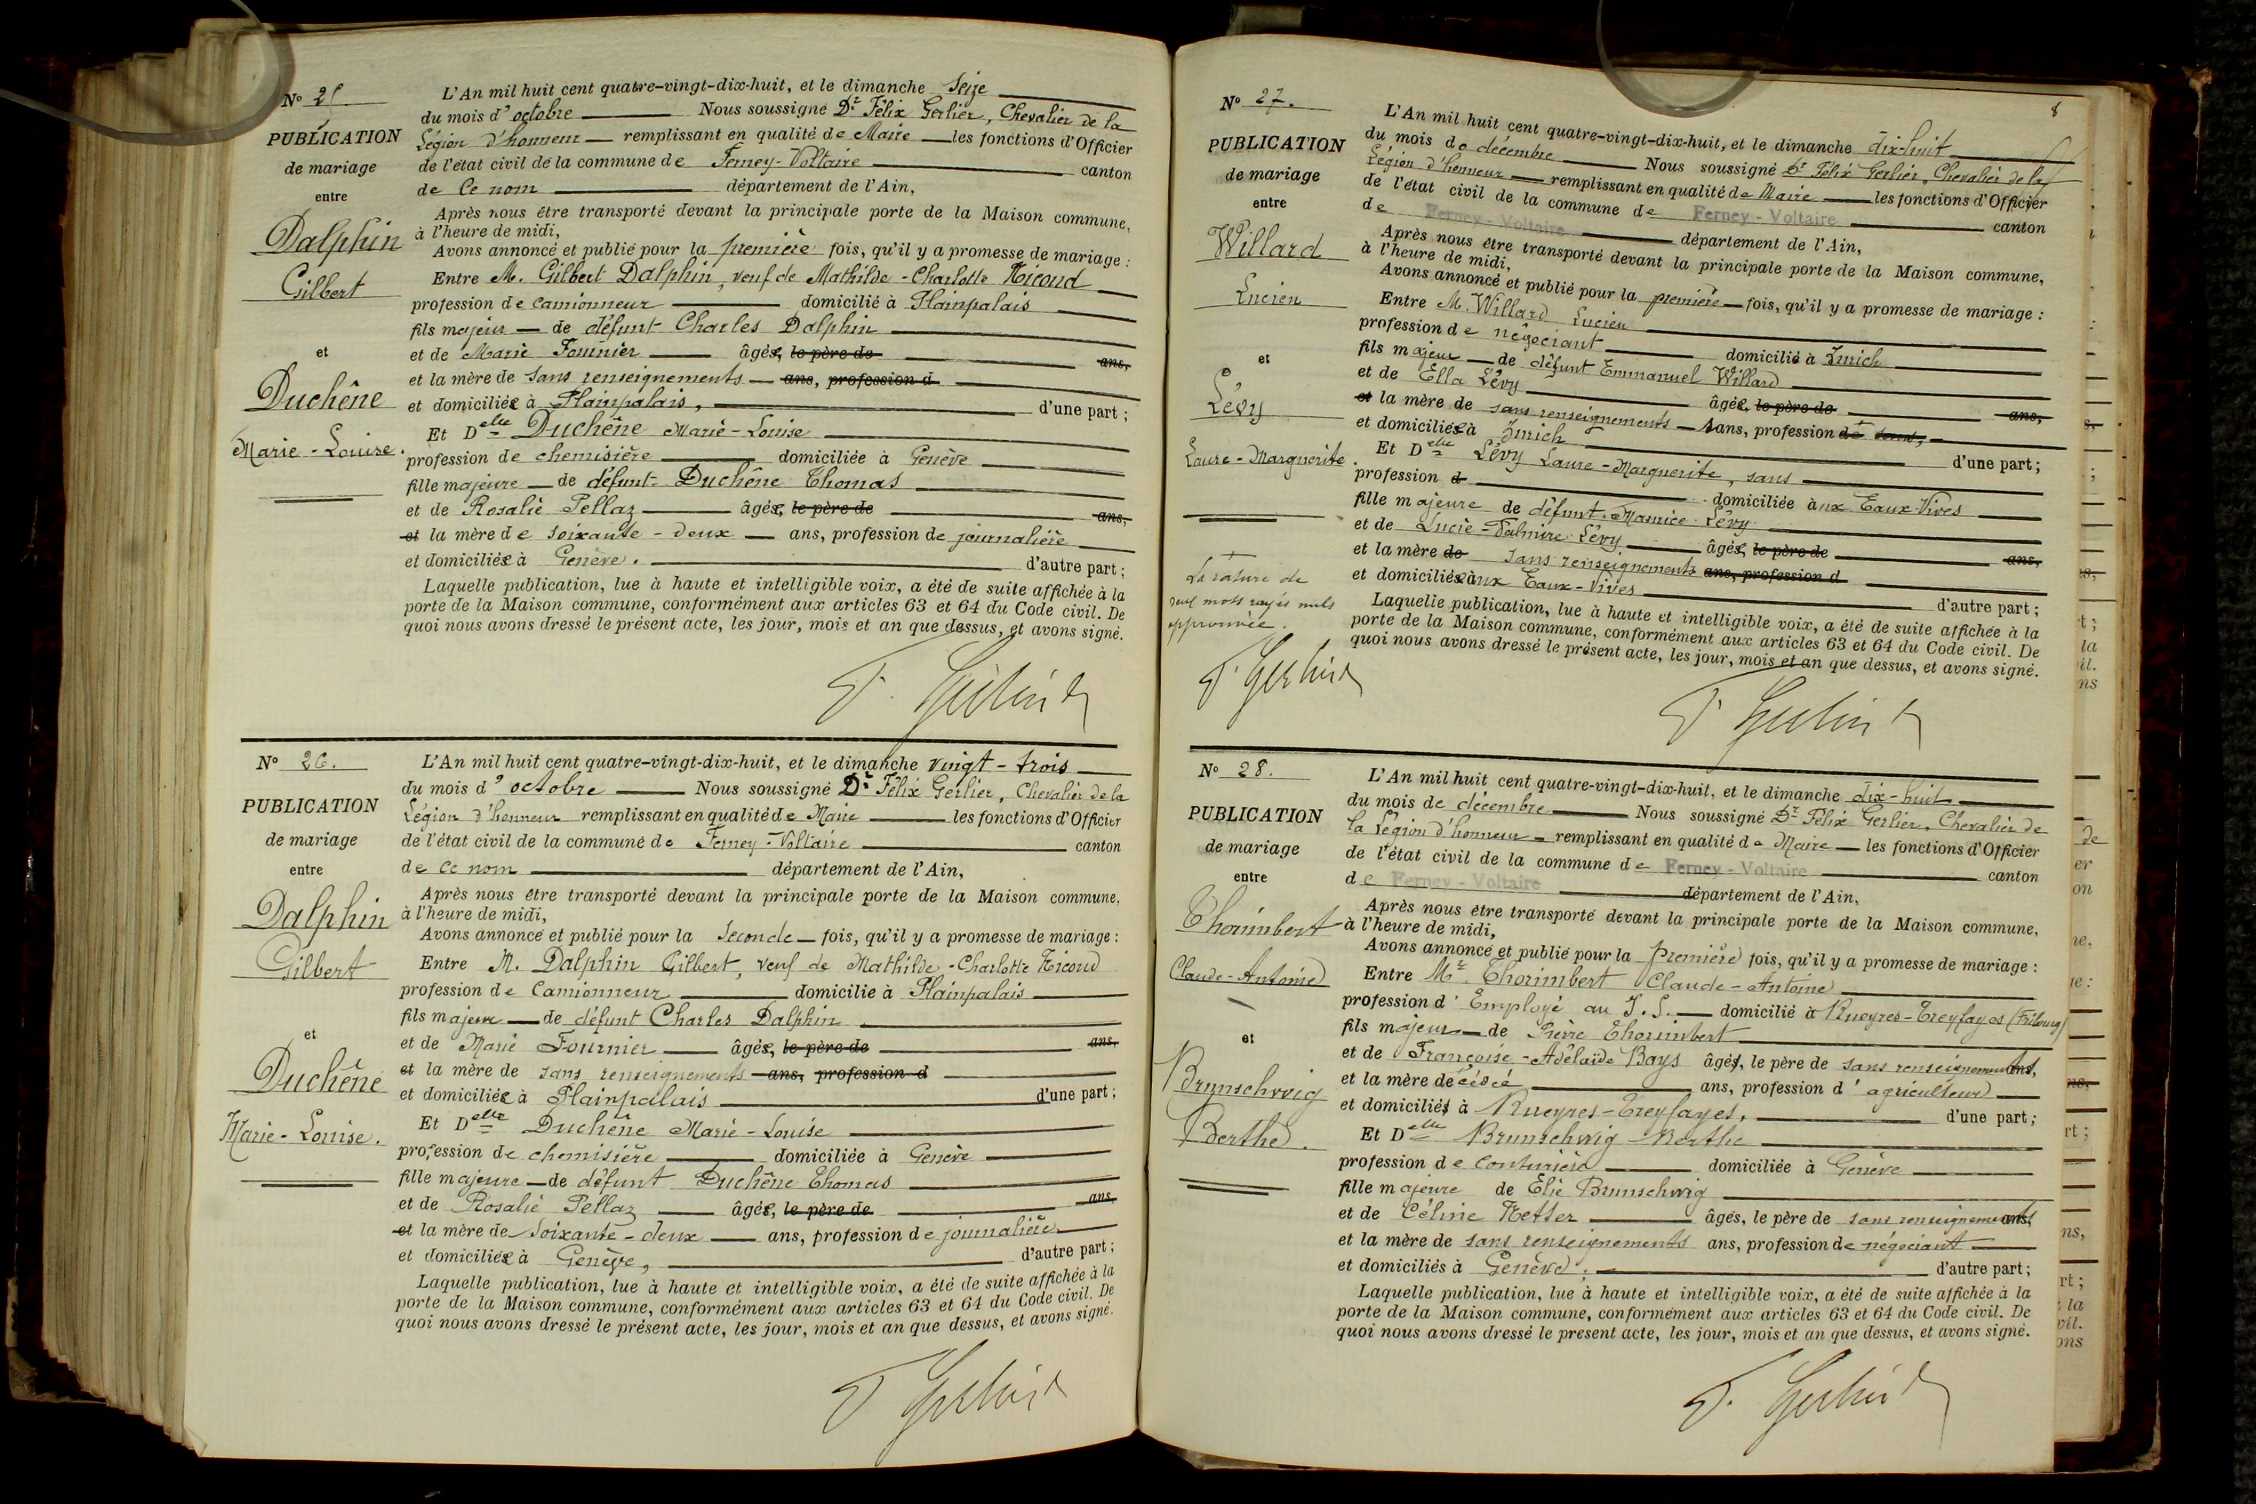 N° 25
PUBLICATION
de mariage
entre
Dalphin
Gilbert
et
Duchêne
Marie-Louise.
L'An mil huit cent quatre-vingt-dix-huit, et le dimanche Seize
du mois d'octobre Nous soussigné Dr Félix Gerlier, Chevalier de la
Légion d'honneur remplissant en qualité de Maire les fonctions d'Officier
de l'état civil de la commune de Ferney-Voltaire canton
de Ce nom département de l'Ain,
Après nous être transporté devant la principale porte de la Maison commune,
à l'heure de midi,
Avons annoncé et publié pour la première fois, qu'il y a promesse de mariage :
Entre M. Gilbert Dalphin, veuf de Mathilde-Charlotte Nicoud
profession de camionneur domicilié à Plainpalais
fils majeur de défunt Charles Dalphin
et de Marie Fournier âgés, le père de ans,
et la mère de sans renseignements ans, profession d
et domiciliée à Plainpalais, d'une part ;
Et Delle Duchêne Marie-Louise
profession de chemisière domiciliée à Genève
fille majeure de défunt Duchêne Thomas
et de Rosalie Pellaz âgés, le père de ans,
et la mère de soixante-deux ans, profession de journalière
et domiciliée à Genève. d'autre part ;
Laquelle publication, lue à haute et intelligible voix, a été de suite affichée à la
porte de la Maison commune, conformément aux articles 63 et 64 du Code civil. De
quoi nous avons dressé le présent acte, les jour, mois et an que dessus, et avons signé.
F. Gerlier
N° 26.
PUBLICATION
de mariage
entre
Dalphin
Gilbert
et
Duchêne
Marie-Louise.
L'An mil huit cent quatre-vingt-dix-huit, et le dimanche vingt-trois
du mois d'octobre Nous soussigné Dr Félix Gerlier, Chevalier de la
Légion d'honneur remplissant en qualité de Maire les fonctions d'Officier
de l'état civil de la commune de Ferney-Voltaire canton
de ce nom département de l'Ain,
Après nous être transporté devant la principale porte de la Maison commune,
à l'heure de midi,
Avons annoncé et publié pour la seconde fois, qu'il y a promesse de mariage :
Entre M. Dalphin Gilbert, veuf de Mathilde-Charlotte Nicoud
profession de Camionneur domicilié à Plainpalais
fils majeur de défunt Charles Dalphin
et de Marie Fournier âgés, le père de ans,
et la mère de sans renseignements ans, profession d
et domiciliée à Plainpalais d'une part ;
Et Delle Duchêne Marie-Louise
profession de chemisière domiciliée à Genève
fille majeure de défunt Duchêne Thomas
et de Rosalie Pellaz âgés, le père de ans,
et la mère de soixante-deux ans, profession de journalière
et domiciliée à Genève, d'autre part ;
Laquelle publication, lue à haute et intelligible voix, a été de suite affichée à la
porte de la Maison commune, conformément aux articles 63 et 64 du Code civil. De
quoi nous avons dressé le présent acte, les jour, mois et an que dessus, et avons signé.
F. Gerlier
8
N° 27.
PUBLICATION
de mariage
entre
Willard
Lucien
et
Lévy
Laure-Marguerite.
La rature de
neuf mots rayés nuls
approuvée.
F. Gerlier
L'An mil huit cent quatre-vingt-dix-huit, et le dimanche dix-huit
du mois de décembre Nous soussigné Dr Félix Gerlier, Chevalier de la
Légion d'honneur remplissant en qualité de Maire les fonctions d'Officier
de l'état civil de la commune de Ferney-Voltaire canton
de Ferney-Voltaire département de l'Ain,
Après nous être transporté devant la principale porte de la Maison commune,
à l'heure de midi,
Avons annoncé et publié pour la première fois, qu'il y a promesse de mariage :
Entre M. Willard Lucien
profession de négociant domicilié à Zurich
fils majeur de défunt Emmanuel Willard
et de Ella Lévy âgés, le père de ans,
et la mère de sans renseignements sans, profession de
et domiciliée à Zurich d'une part ;
Et Delle Lévy Laure-Marguerite, sans
profession d domiciliée aux Eaux-Vives
fille majeure de défunt Maurice Lévy
et de Lucie-Palmire Lévy âgés, le père de ans,
et la mère de sans renseignements ans, profession d
et domiciliée aux Eaux-Vives d'autre part ;
Laquelle publication, lue à haute et intelligible voix, a été de suite affichée à la
porte de la Maison commune, conformément aux articles 63 et 64 du Code civil. De
quoi nous avons dressé le présent acte, les jour, mois et an que dessus, et avons signé.
F. Gerlier
N° 28.
PUBLICATION
de mariage
entre
Thorimbert
Claude-Antoine
et
Brunschwig
Berthe.
L'An mil huit cent quatre-vingt-dix-huit, et le dimanche dix-huit
du mois de décembre Nous soussigné Dr Félix Gerlier, Chevalier de
la Légion d'honneur remplissant en qualité de Maire les fonctions d'Officier
de l'état civil de la commune de Ferney-Voltaire canton
de Ferney-Voltaire département de l'Ain,
Après nous être transporté devant la principale porte de la Maison commune,
à l'heure de midi,
Avons annoncé et publié pour la première fois, qu'il y a promesse de mariage :
Entre Mr. Thorimbert Claude-Antoine
profession d'Employé au J. S. domicilié à Rueyres-Treyfayes (Fribourg)
fils majeur de Pierre Thorimbert
et de Françoise-Adélaïde Bays âgés, le père de sans renseignements ans,
et la mère décédée ans, profession d'agriculteur
et domiciliés à Rueyres-Treyfayes, d'une part ;
Et Delle Brunschwig Berthe
profession de couturière domiciliée à Genève
fille majeure de Elie Brunschwig
et de Céline Netter âgés, le père de sans renseignements ans,
et la mère de sans renseignements ans, profession de négociant
et domiciliés à Genève, d'autre part ;
Laquelle publication, lue à haute et intelligible voix, a été de suite affichée à la
porte de la Maison commune, conformément aux articles 63 et 64 du Code civil. De
quoi nous avons dressé le présent acte, les jour, mois et an que dessus, et avons signé.
F. Gerlier